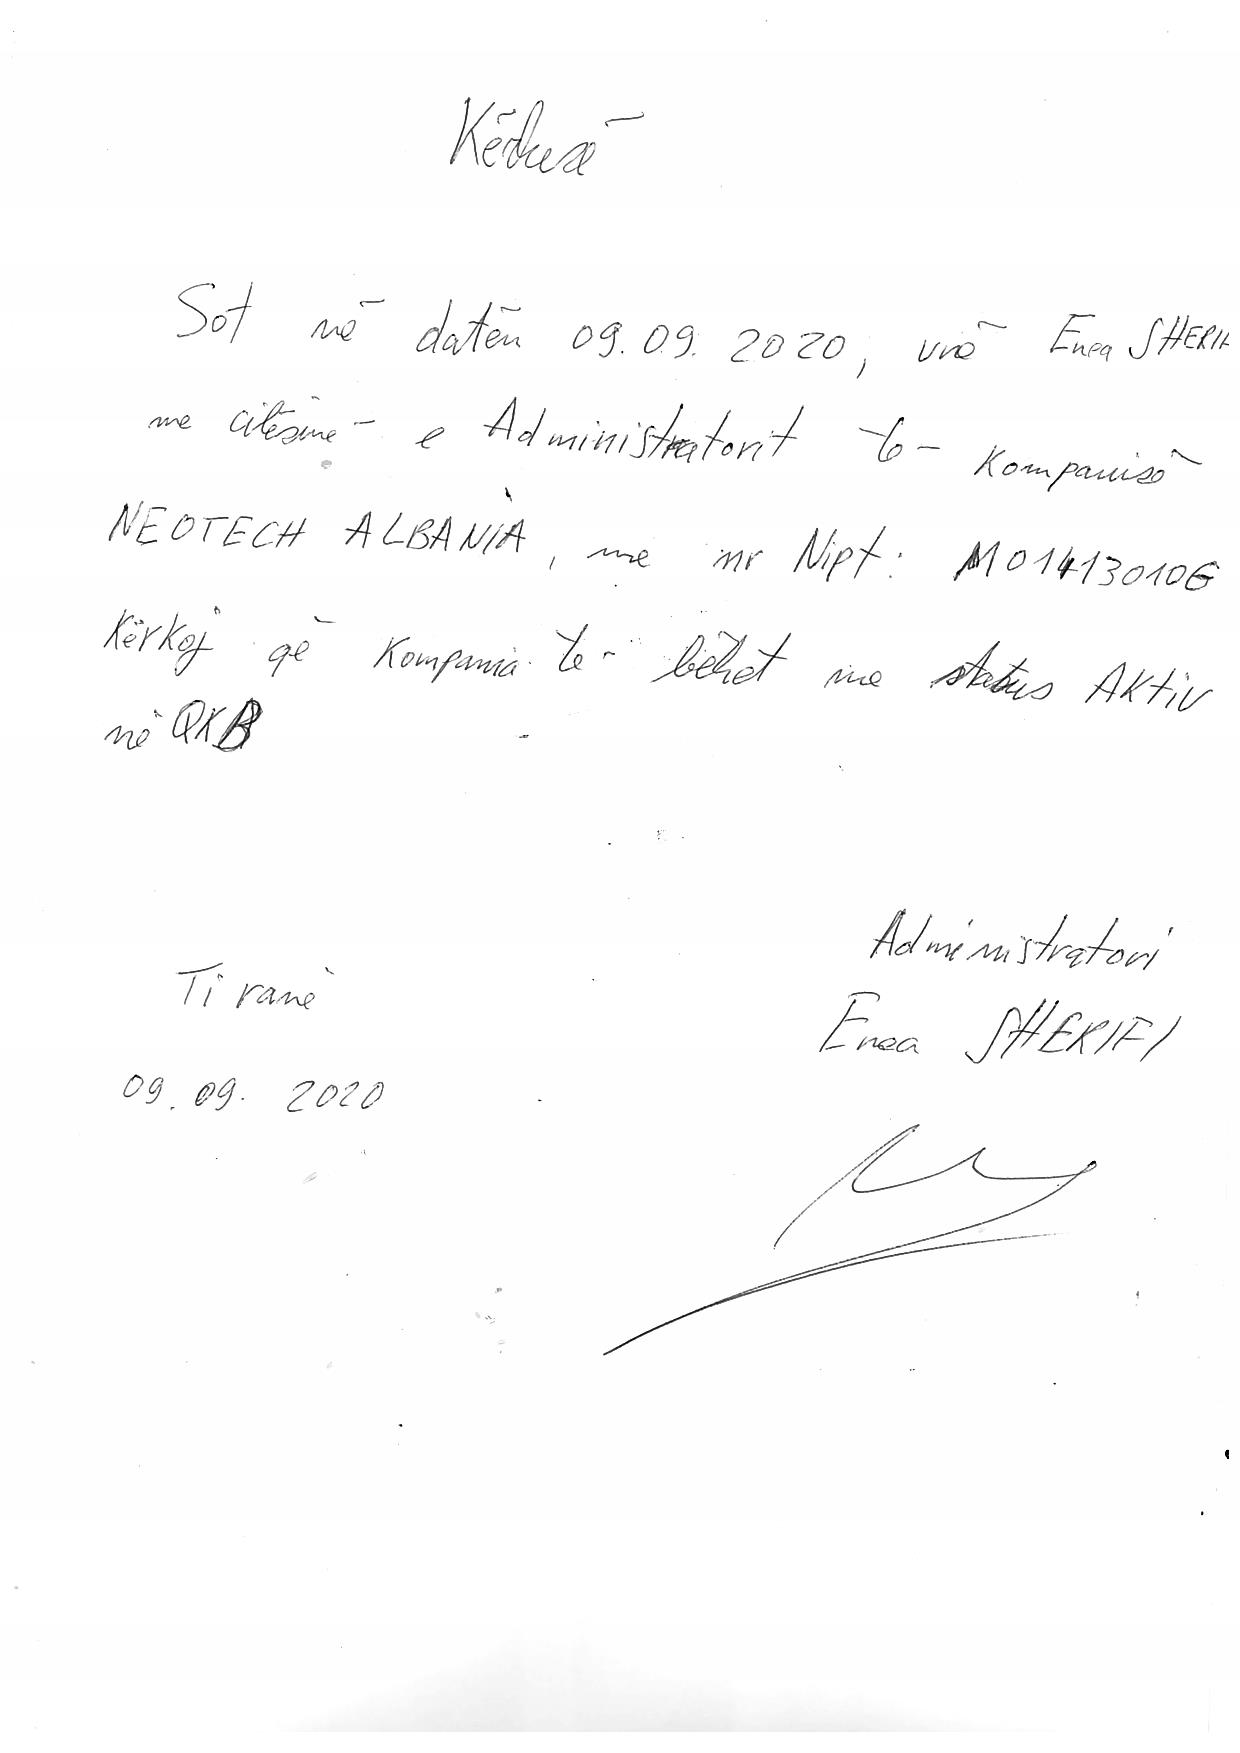 Kërkesë
Sot në datën 09.09.2020, unë Enea SHERIF
me cilësinë e Administratorit të kompanisë
NEOTECH ALBANIA, me nr Nipt: M01413010G
Kërkoj që kompania të bëhet me status AKtiv
në QKB
Administratori
Tiranë
Enea SHERIFI
09.09.2020